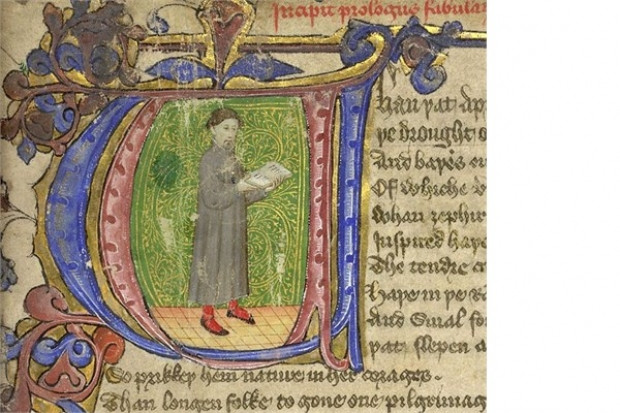 Incipit prologus fabular
Whan þat Apr
þe drought o
And baþes eu
Of whiche v
Whan zephir
Inspired haþe
The tendre cr
Haþe in þe Ra
And Smal fo
þat slepen a
So prikkeþ hem nature in her corages.
Than longen folke to gone one pilgrimag